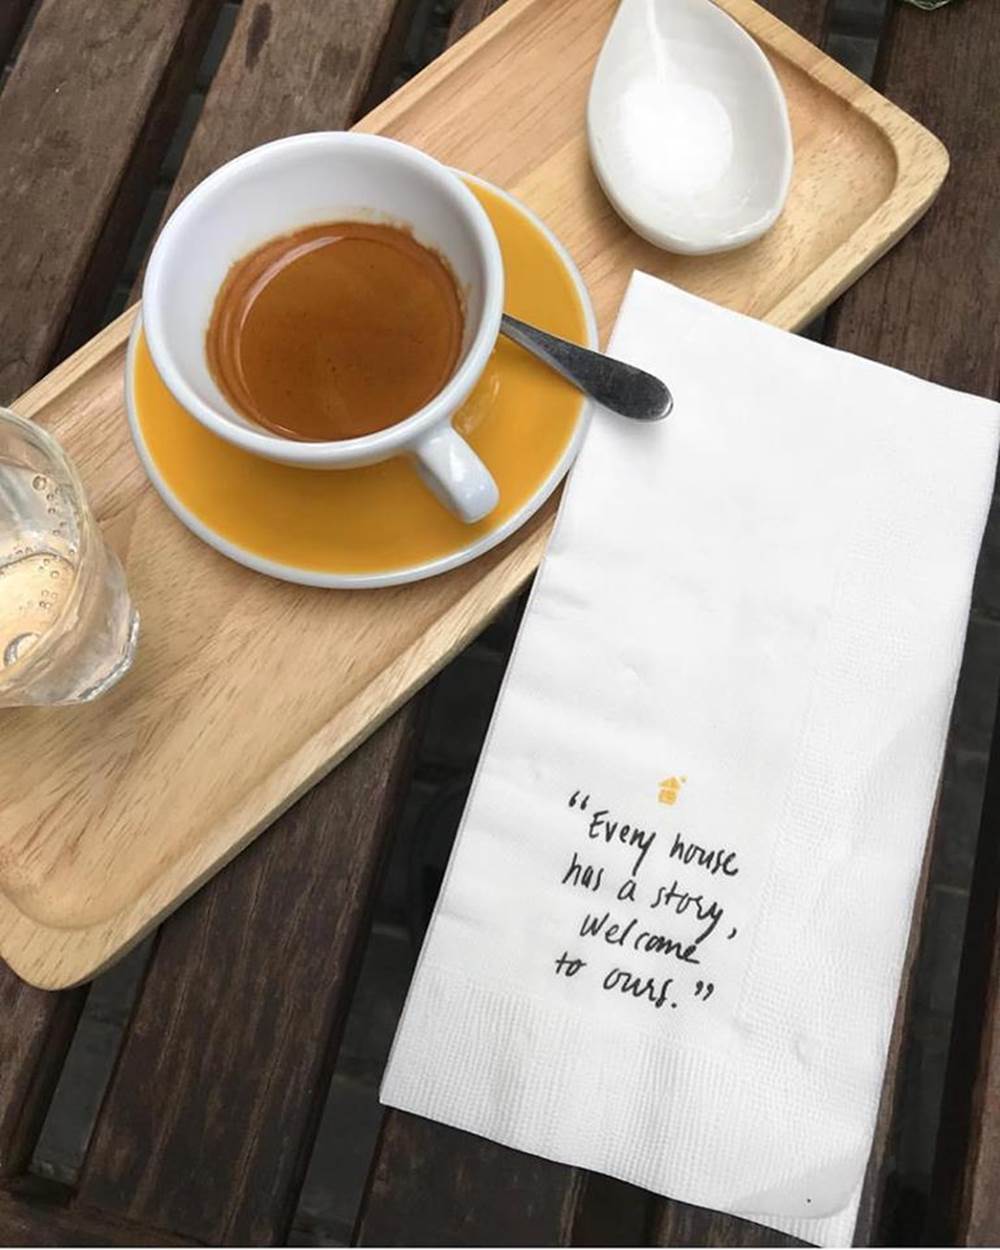 “Every house
has a story,
Welcome
to ours.”